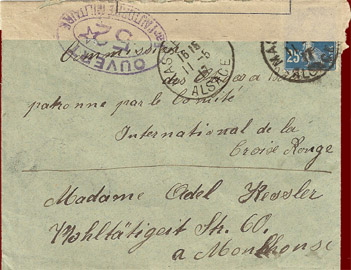 PAR L'AUTORITÉ MILITAIRE
OUVERT
52
MASEVAUX
16 15
11 -5
ALSACE
25
Commission
des
patronne par le Comité
International de la
Croix Rouge
Madame Adel Kessler
Wohltätigeit Str. 60.
a Moulhouse